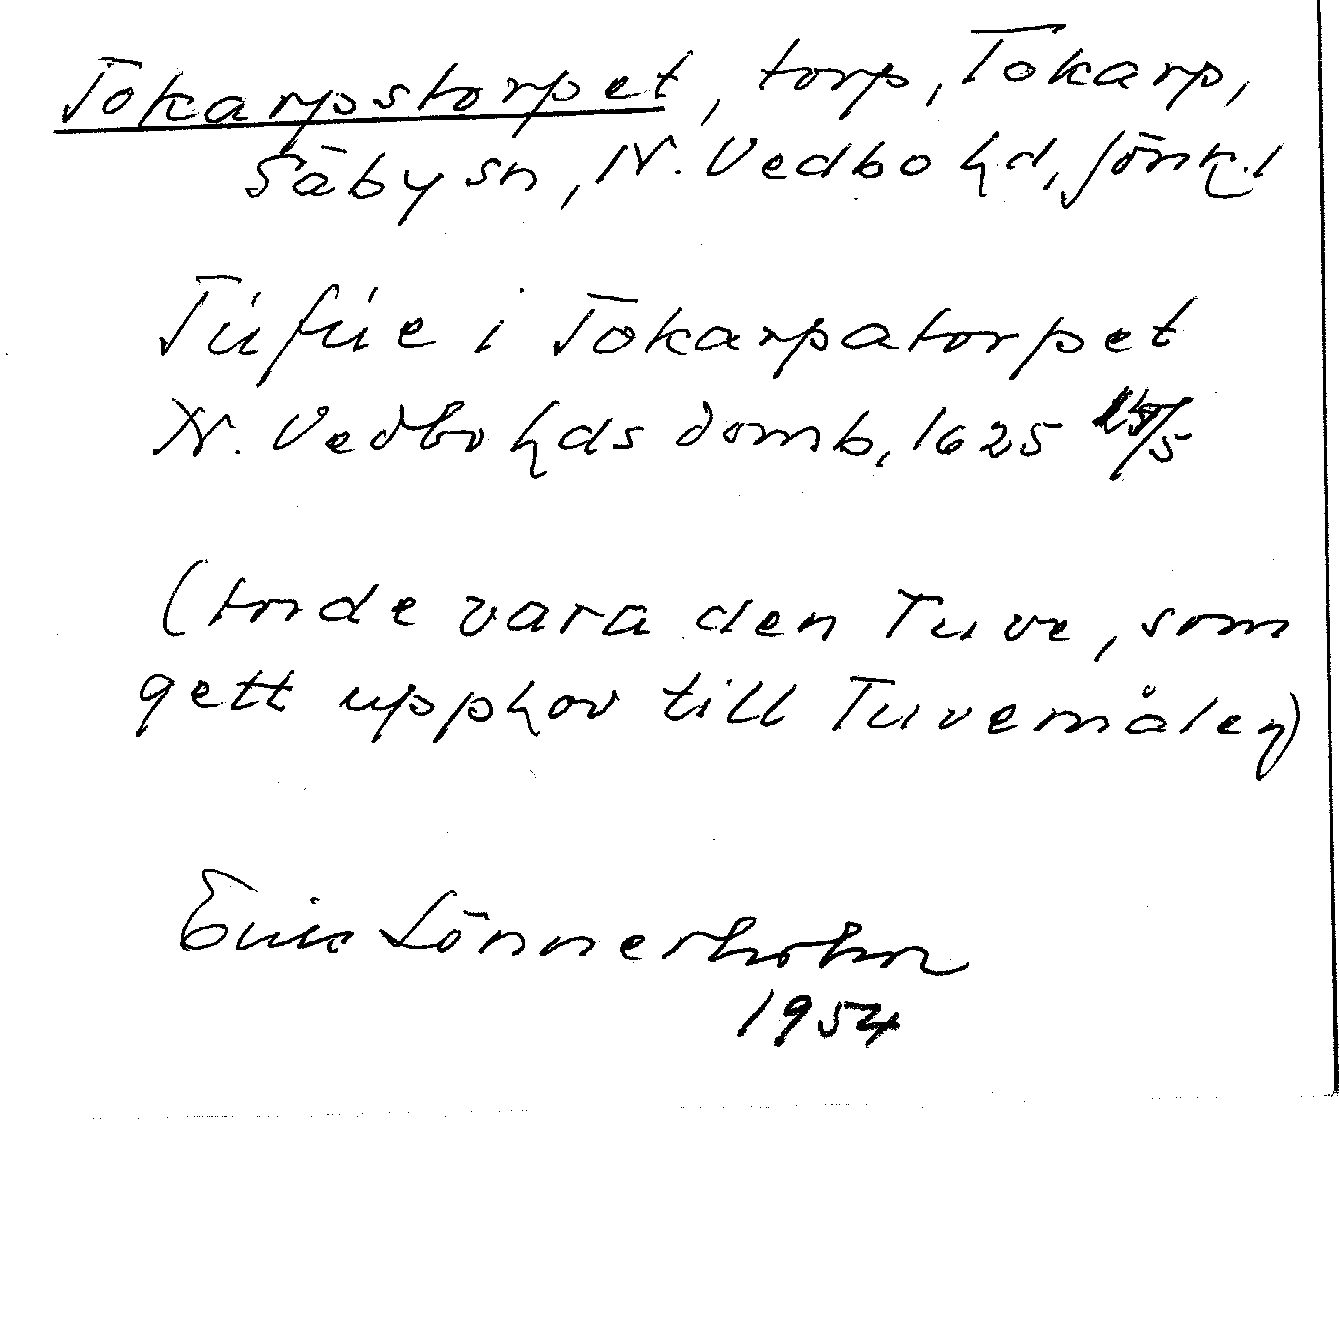 Tokarpstorpet, torp, Tokarp,
Säby sn, N. Vedbo hd, Jönk. l
Túfúe i Tokarpatorpet
N. Vedbo hds domb, 1625 /5
(torde vara den Tuve, som
gett upphov till Tuvemålen)
Eric Lönnerholm
1954